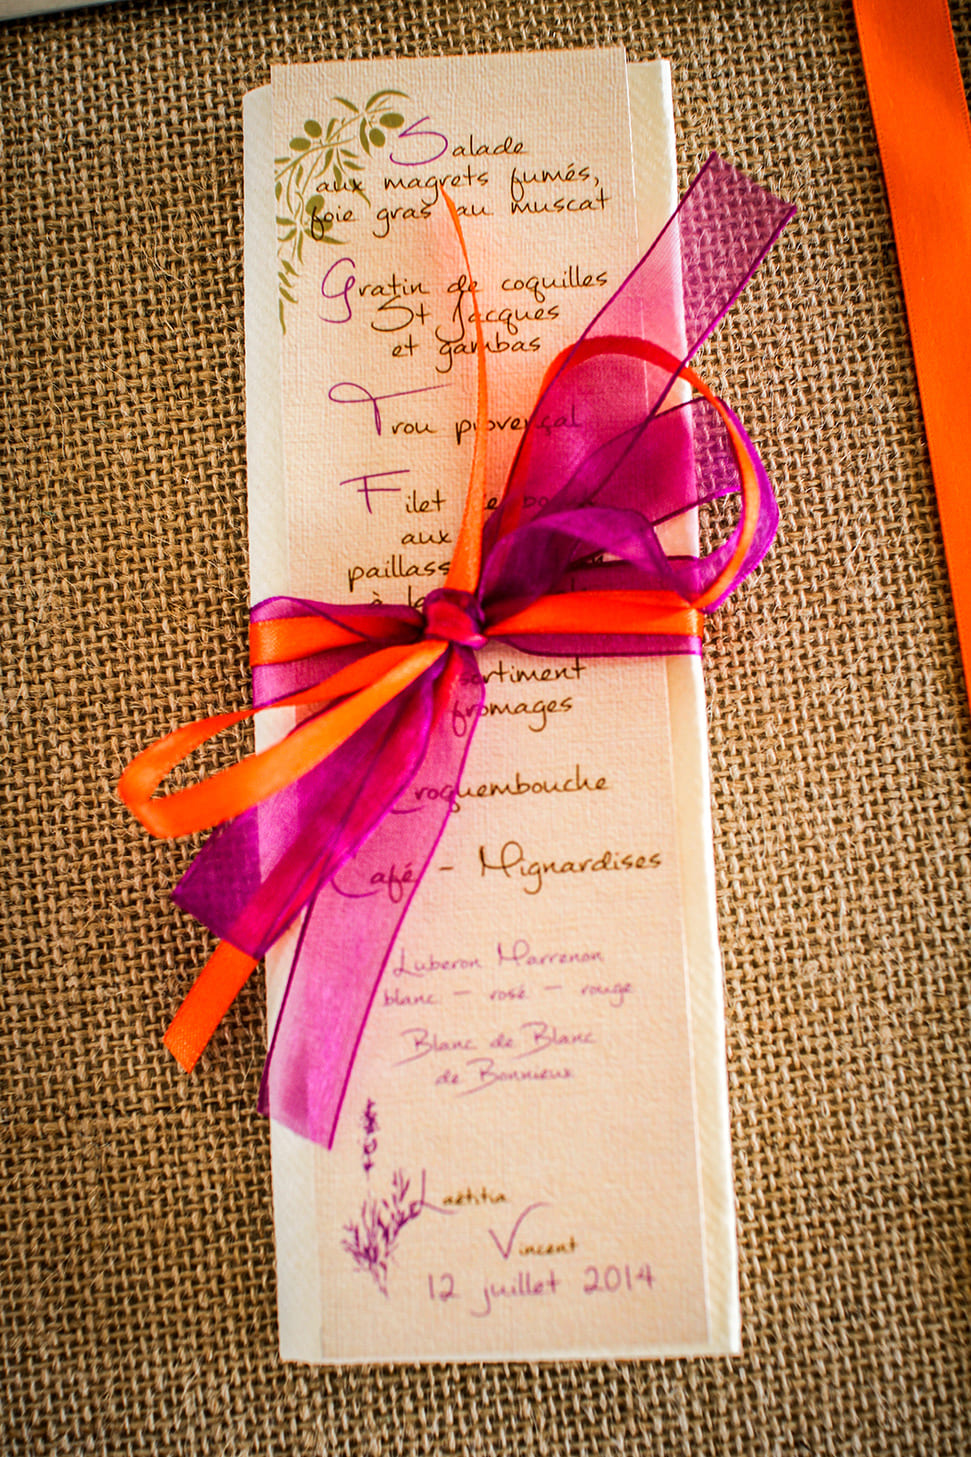 Salade
aux magrets fumés,
foie gras au muscat
Gratin de coquilles
St Jacques
et gambas
Trou provençal
Filet
aux
paillass
à la
artiment
fromages
Croquembouche
Café - Mignardises
Luberon Marrenon
blanc - rosé - rouge
Blanc de Blanc
de Bonnieux
Laëtitia
Vincent
12 juillet 2014